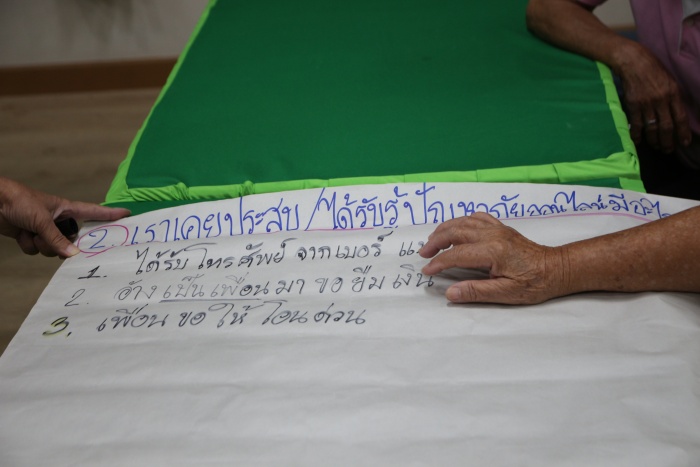 2. เราเคยประสบ/ได้รับรู้ปัญหาภัยออนไลน์มีอะไ
1. ได้รับ โทรศัพย์ จากเบอร์
2. อ้าง เป็น เพื่อน มา ขอ ยืม เงิน
3. เพื่อน ขอ ให้ โอน ด่วน